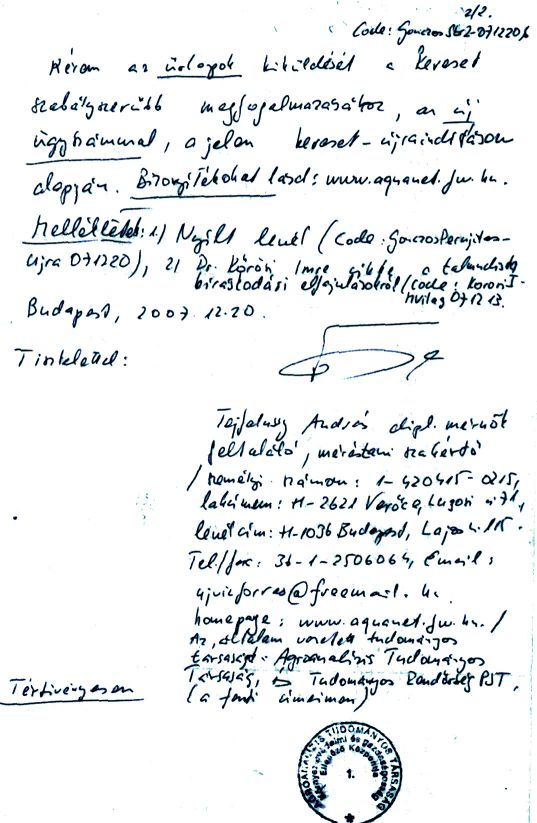 2/2.
Code: GonczosStr2-071220/b
Kérem az űrlapok kiküldését a kereset
szabályszerűbb megfogalmazásához, az új
ügyszámmal, a jelen kereset-újraindításom
alapján. Bizonyítékokat lásd: www.aquanet.fw.hu.
Mellékletek: 1./ Nyílt levél (code: GonczosPernyitas-
újra 071220), 2/ Dr. Kőrösi Imre cikke a
bíráskodási elfajulásokról/code: KorosiI-
071213.
Budapest, 2007.12.20.
Tisztelettel:
Tejfalussy András dipl. mérnök
feltaláló, méréstani szakértő
/személyi számom: 1-420415-0215,
lakcímem: H-2621 Verőce, Lugosi ú 71,
levélcím: H-1036 Budapest, Lajos u. 115.
Tel./fax: 36-1-2506064, Email:
ujvizforras@freemail.hu
homepage: www.aquanet.fw.hu./
Az általam vezetett tudományos
társaság: Agroanalízis Tudományos
Társaság, Tudományos Rendőrség PJT,
(a fenti címeimen)
Tértivényesen
AGROANALÍZIS TUDOMÁNYOS TÁRSASÁG
Környezetvédelmi és gazdaságossági
Ellenőrző Központja
1.